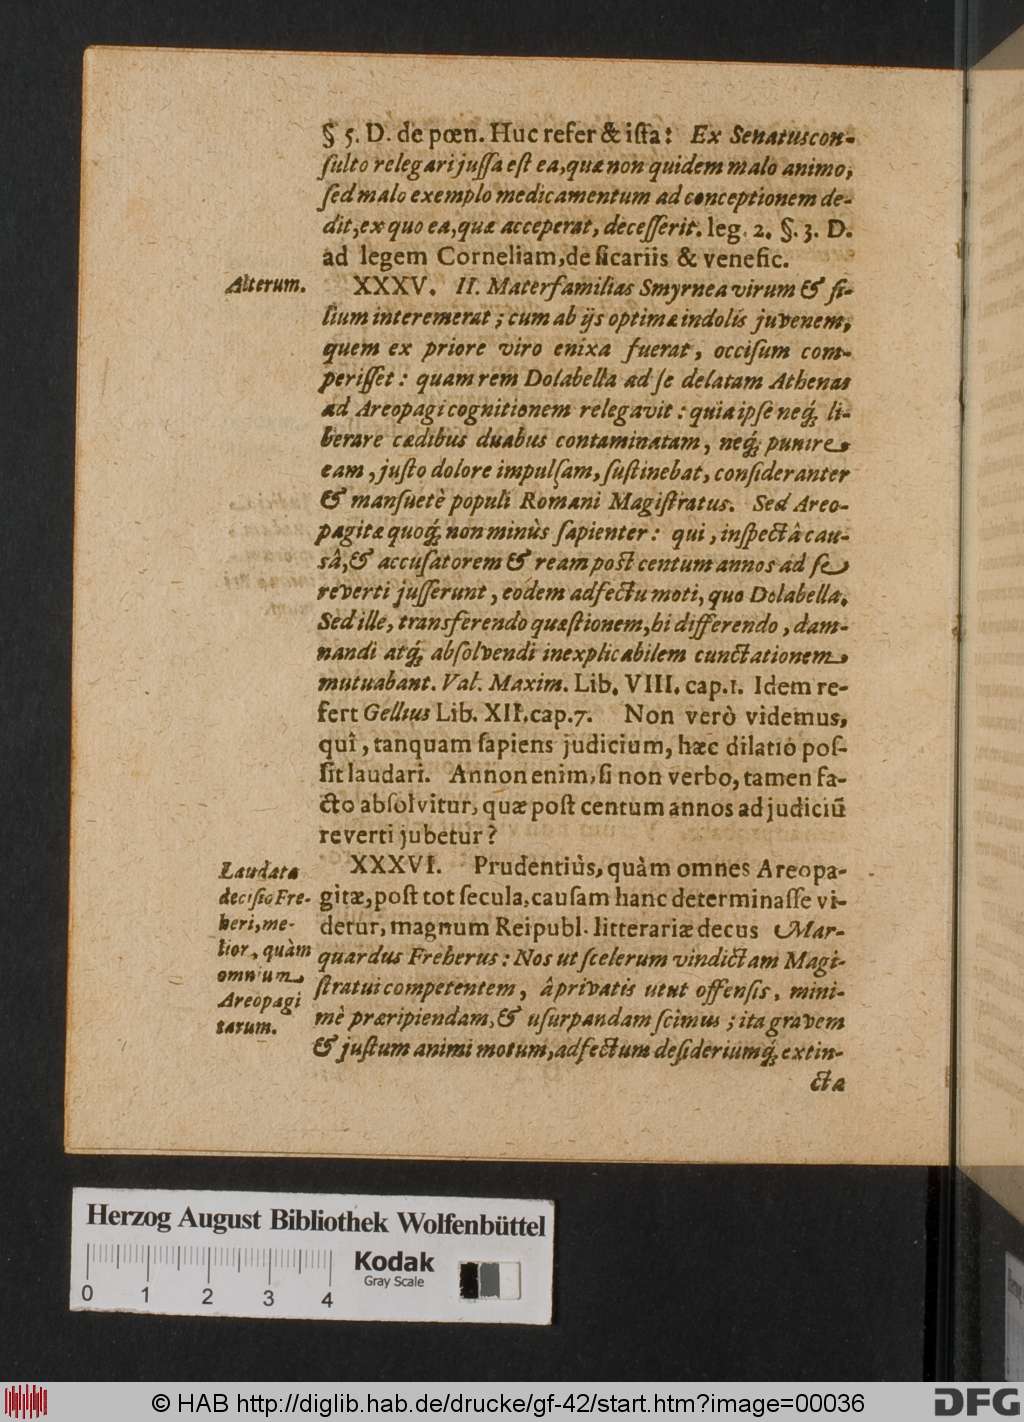 § 5. D. de pœn. Huc refer & iſta: Ex Senatuscon-
ſulto relegari juſſa eſt ea, quæ non quidem malo animo,
ſed malo exemplo medicamentum ad conceptionem de-
dit, ex quo ea, quæ acceperat, deceſſerit. leg. 2. §. 3. D.
ad legem Corneliam, de ſicariis & venefic.
Alterum.
XXXV. II. Materfamilias Smyrnea virum & fi-
lium interemerat; cum ab ijs optimæ indolis juvenem,
quem ex priore viro enixa fuerat, occiſum com-
periſſet: quam rem Dolabella ad ſe delatam Athenas
ad Areopagi cognitionem relegavit: quia ipſe neq́; li-
berare cædibus duabus contaminatam, neq́; punire
eam, juſto dolore impulſam, ſuſtinebat, conſideranter
& manſuetè populi Romani Magiſtratus. Sed Areo-
pagitæ quoq́; non minùs ſapienter: qui, inſpectâ cau-
sâ, & accuſatorem & ream post centum annos ad ſe
reverti juſſerunt, eodem adfectu moti, quo Dolabella.
Sed ille, transferendo quæſtionem, hi differendo, dam-
nandi atq́; abſolvendi inexplicabilem cunctationem
mutuabant. Val. Maxim. Lib. VIII. cap. 1. Idem re-
fert Gellius Lib. XII. cap. 7. Non verò videmus,
quî, tanquam ſapiens judicium, hæc dilatio poſ-
ſit laudari. Annon enim, ſi non verbo, tamen fa-
cto abſolvitur, quæ poſt centum annos ad judiciū
reverti jubetur?
Laudata
deciſio Fre-
heri, me-
lior, quàm
omnium
Areopagi
tarum.
XXXVI. Prudentiùs, quàm omnes Areopa-
gitæ, poſt tot ſecula, cauſam hanc determinaſſe vi-
detur, magnum Reipubl. litterariæ decus Mar-
quardus Freherus: Nos ut ſcelerum vindictam Magi-
ſtratui competentem, â privatis utut offenſis, mini-
mè præripiendam, & uſurpandam ſcimus; ita gravem
& juſtum animi motum, adfectum deſideriumq́; extin-
cta
Herzog August Bibliothek Wolfenbüttel
0 1 2 3 4
Kodak
Gray Scale
© HAB http://diglib.hab.de/drucke/gf-42/start.htm?image=00036
DFG